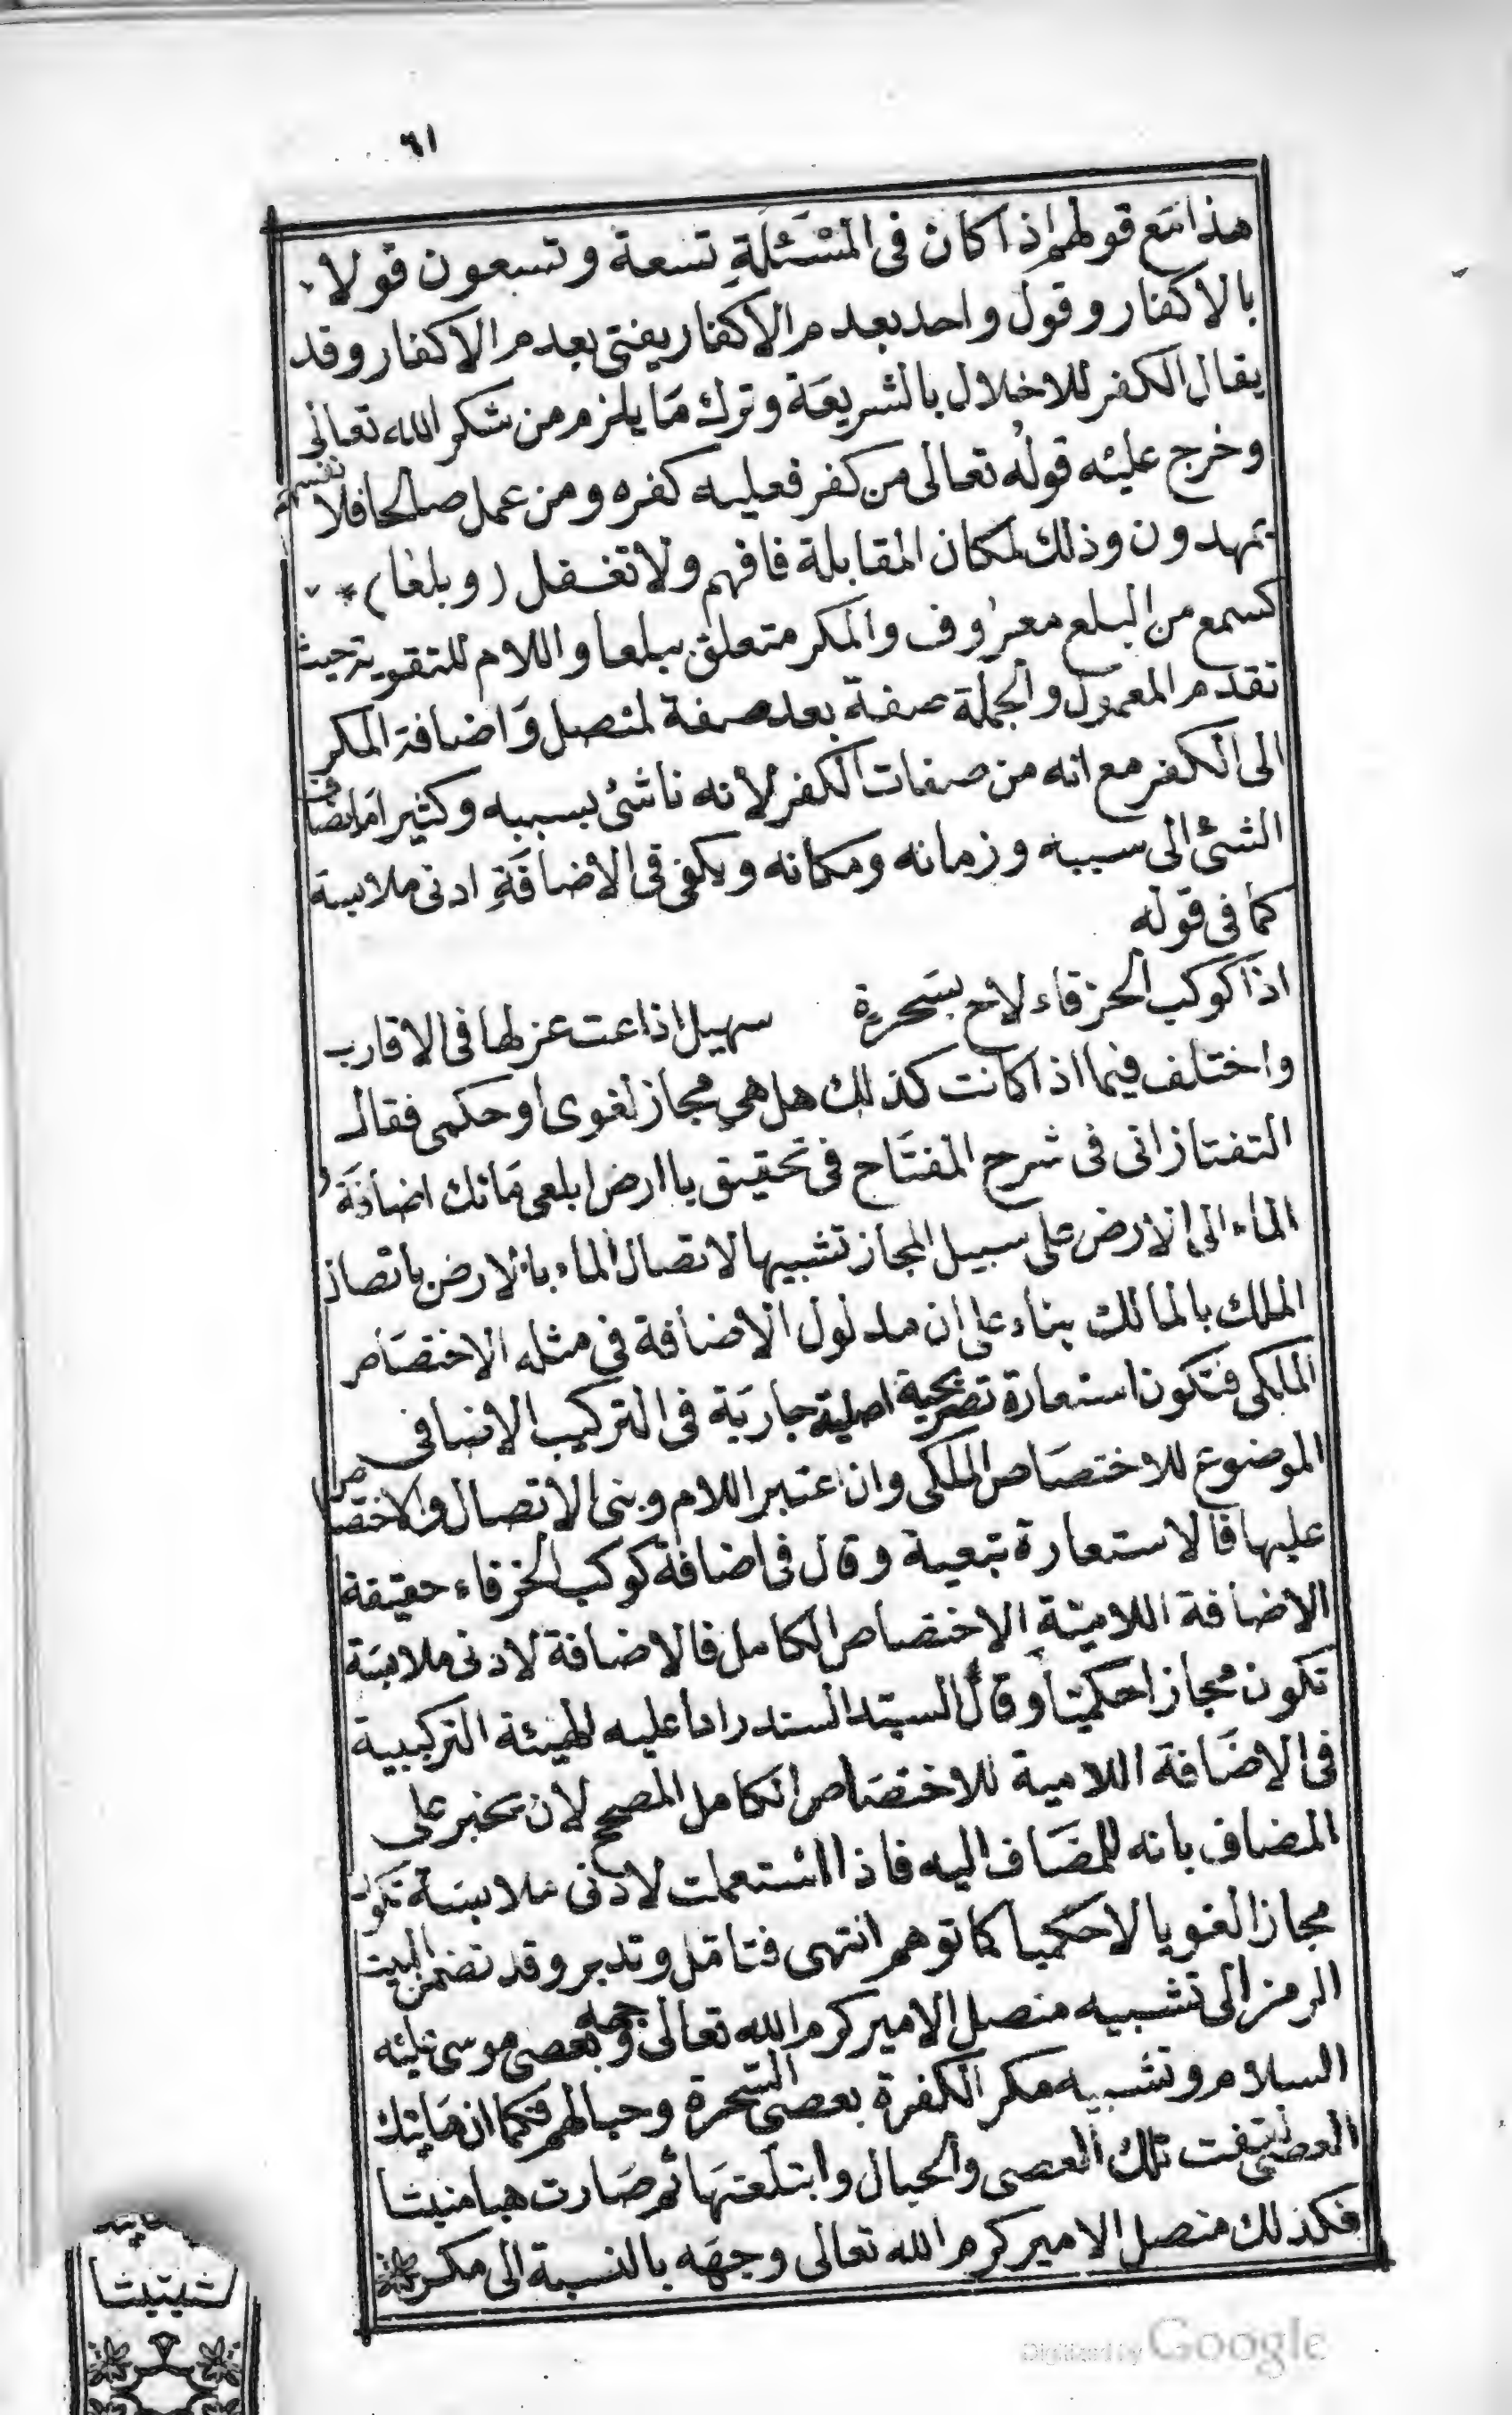 ٦١
هذا مع قولهم اذا كان فى المسئلة تسعة وتسعون قولا
بالاكفار وقول واحد بعدم الاكفار يفتى بعدم الاكفار وقد
يقال الكفر للاخلال بالشريعة وترك ما يلزم من شكر الله تعالى
وخرج عليه قوله تعالى من كفر فعليه كفره ومن عمل صالحا فلانفسهم
يمهدون وذلك لمكان المقابلة فافهم ولا تغفل (وبلغا) *
كسمع من البلع معروف والمكر متعلق ببلعا واللام للتقوية حيث
تقدم المعمول والجملة صفة بعد صفة لمنصل واضافة المكر
الى الكفر مع انه من صفات الكفر لانه ناشئ بسببه وكثيرا ما يضاف
الشئ الى سببه وزمانه ومكانه ويكفى فى الاضافة ادنى ملابسة
كما فى قوله
اذا كوكب الخرقاء لاح بسحرة سهيل اذاعت غزلها فى الاقارب
واختلف فيما اذا كانت كذلك هل هى مجاز لغوى او حكمى فقال
التفتازانى فى شرح المفتاح فى تحقيق يا ارض ابلعى مائك اضافة
الماء الى الارض على سبيل المجاز تشبيها لاتصال الماء بالارض باتصال
الملك بالمالك بناء على ان مدلول الاضافة فى مثله الاختصاص
الملكى فتكون استعارة تصريحية اصلية جارية فى التركيب الاضافى
الموضوع للاختصاص الملكى وان اعتبر اللام وبنى الاتصال والاختصاص
عليها فالاستعارة تبعية وقال فى اضافة كوكب الخرقاء حقيقة
الاضافة اللامية الاختصاص الكامل فالاضافة لادنى ملابسة
تكون مجازا حكميا وقال السيد السند رادا عليه الهيئة التركيبية
فى الاضافة اللامية للاختصاص الكامل المصحح لان يخبر على
المضاف بانه للمضاف اليه فاذا استعملت لادنى ملابسة تكون
مجازا لغويا لا حكميا كما توهم انتهى فتامل وتدبر وقد تضمن البيت
الرمز الى تشبيه منصل الامير كرم الله تعالى وجهه بعصى موسى عليه
السلام وتشبيه مكر الكفرة بعصى السحرة وحبالهم فكما ان هاتيك
العصى تلقفت تلك العصى والحبال وابتلعتها ثم صارت هبا منبثا
فكذلك منصل الامير كرم الله تعالى وجهه بالنسبة الى مكر
Digitized by Google